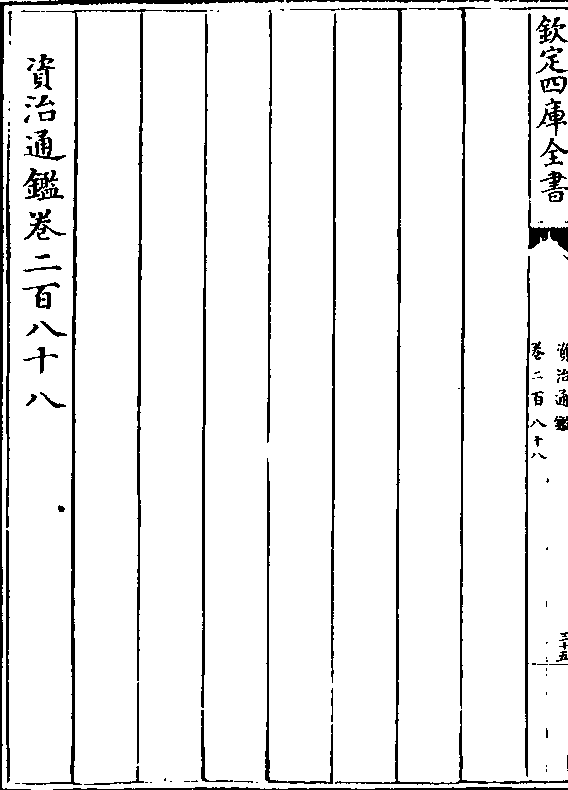 欽定四庫全書
資治通鑑
卷二百八十八
三十五
資治通鑑卷二百八十八